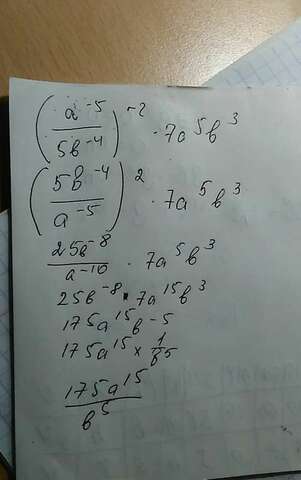 (a⁻⁵/5b⁻⁴)⁻² · 7a⁵b³
(5b⁻⁴/a⁻⁵)² · 7a⁵b³
25b⁻⁸/a⁻¹⁰ · 7a⁵b³
25b⁻⁸ · 7a¹⁵b³
175a¹⁵b⁻⁵
175a¹⁵ × 1/b⁵
175a¹⁵/b⁵